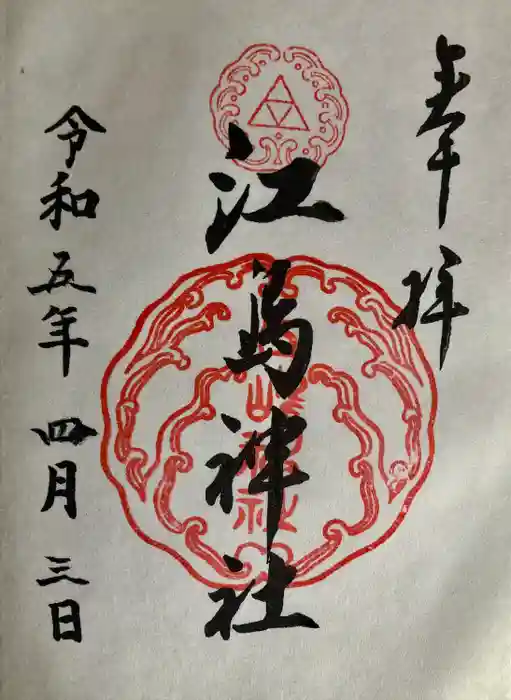 奉拝
江島神社
令和五年四月三日